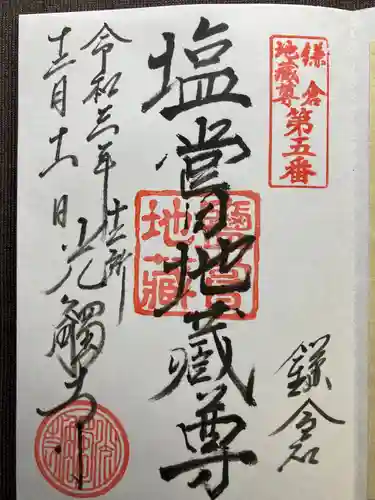 鎌倉
地蔵尊
第五番
鎌倉
塩嘗地蔵尊
鹽嘗
地蔵
十二所
光觸寺
令和三年
十二月十一日